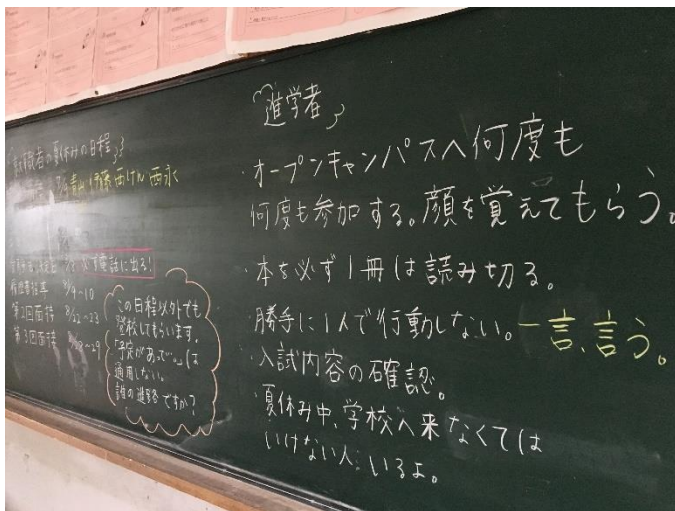 就職者の夏休みの日程
伊藤 西けん 西永
必ず電話に出る!
8/9〜10
第2回面接 8/22〜23
第3回面接 〜29
この日程以外でも
登校してもらいます。
「予定があって…。」は
通用しない。
誰の進路ですか?
進学者
・オープンキャンパスへ何度も
何度も参加する。顔を覚えてもらう。
・本を必ず1冊は読み切る。
・勝手に1人で行動しない。一言、言う。
・入試内容の確認。
・夏休み中、学校へ来なくては
いけない人、いるよ。